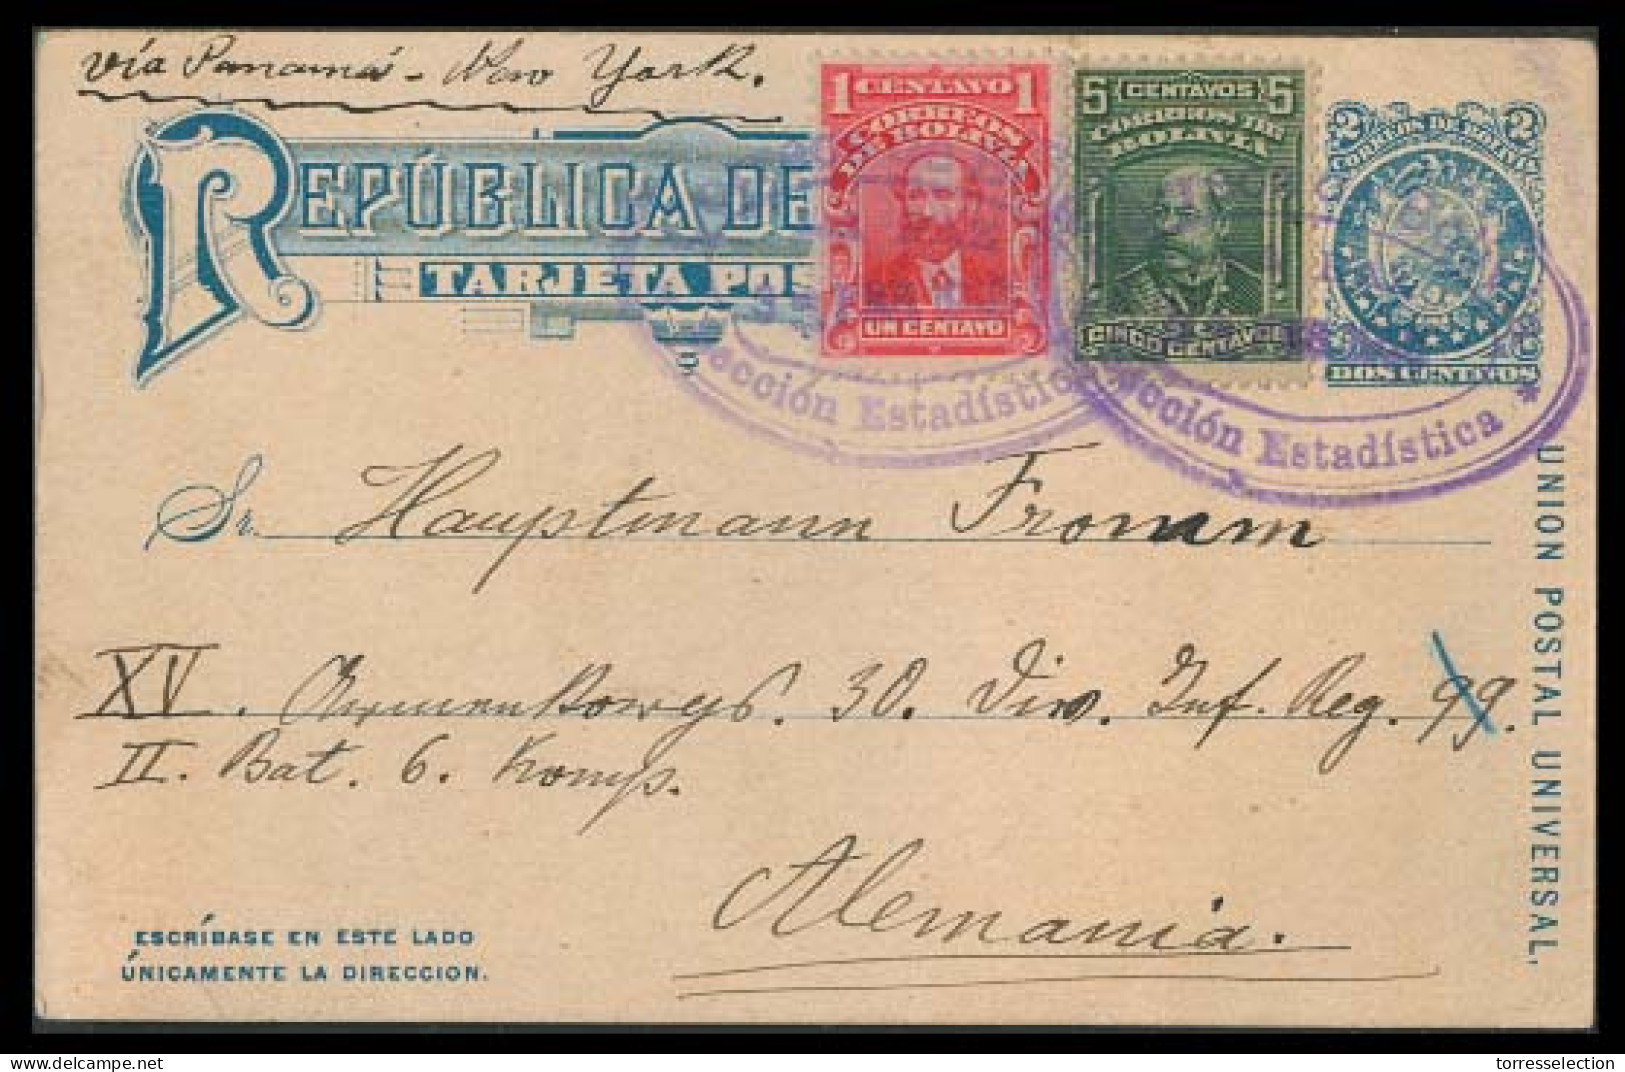 vía Panamá - New York.
REPÚBLICA DE
TARJETA POS
1 CENTAVO 1
CORREOS
DE BOLIVIA
UN CENTAVO
5 CENTAVOS 5
CORREOS DE
BOLIVIA
CINCO CENTAVOS
2 CORREOS DE BOLIVIA 2
DOS CENTAVOS
Estadística
Estadística *
Sr. Hauptmann Fromm
XV. Armeekorps. 30. Div. Inf. Reg. 99.
II. Bat. 6. Komp.
Alemania.
ESCRÍBASE EN ESTE LADO
ÚNICAMENTE LA DIRECCION.
UNION POSTAL UNIVERSAL.
delcampe.net
torresselection